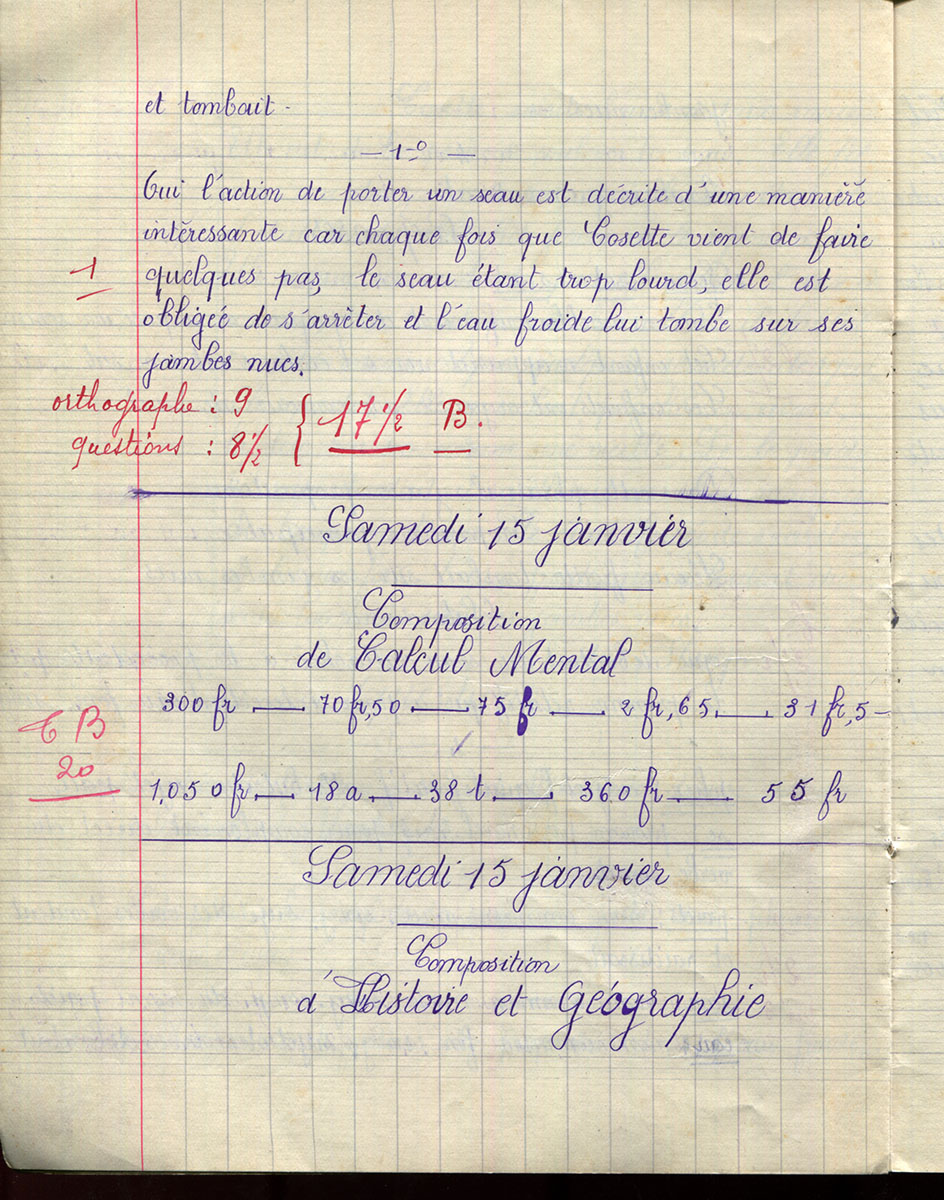 et tombait.
— 1º —
Oui l'action de porter un seau est décrite d'une manière
intéressante car chaque fois que Cosette vient de faire
1 quelques pas, le seau étant trop lourd, elle est
obligée de s'arrêter et l'eau froide lui tombe sur ses
jambes nues.
orthographe : 9
questions : 8 1/2 { 17 1/2 B.
Samedi 15 janvier
Composition
de Calcul Mental
300 fr — 70 fr,50 — 75 fr — 2 fr,65 — 31 fr,5 –
TB
20
1,050 fr — 18 a — 38 t — 360 fr — 55 fr
Samedi 15 janvier
Composition
d'Histoire et Géographie